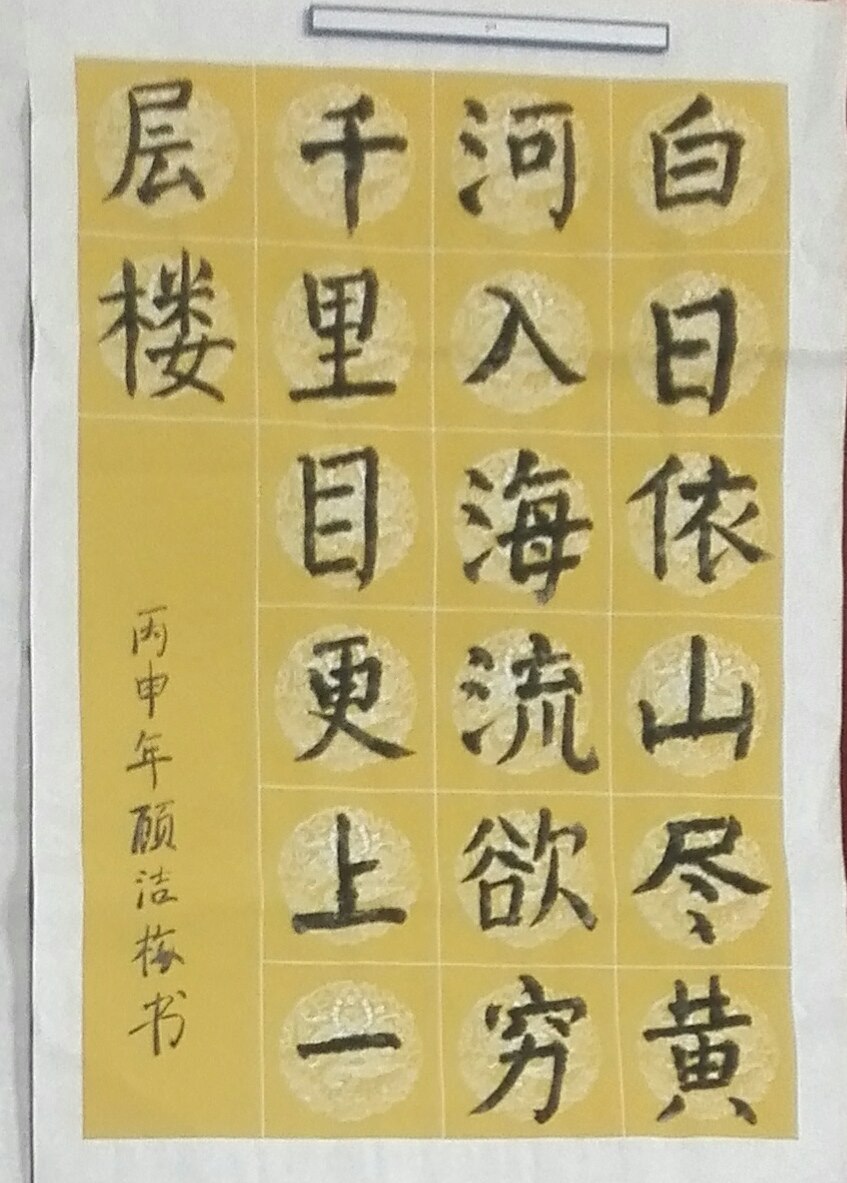 白日依山尽黄
河入海流欲穷
千里目更上一
层楼
丙申年顾洁梅书